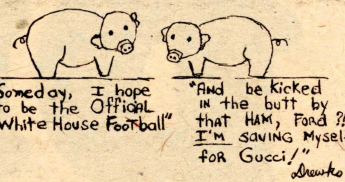 Someday, I hope
to be the Official
White House Football"
"And be kicked
in the butt by
that HAM, Ford ?!
I'M saving Mysel
for Gucci!"
Drewko